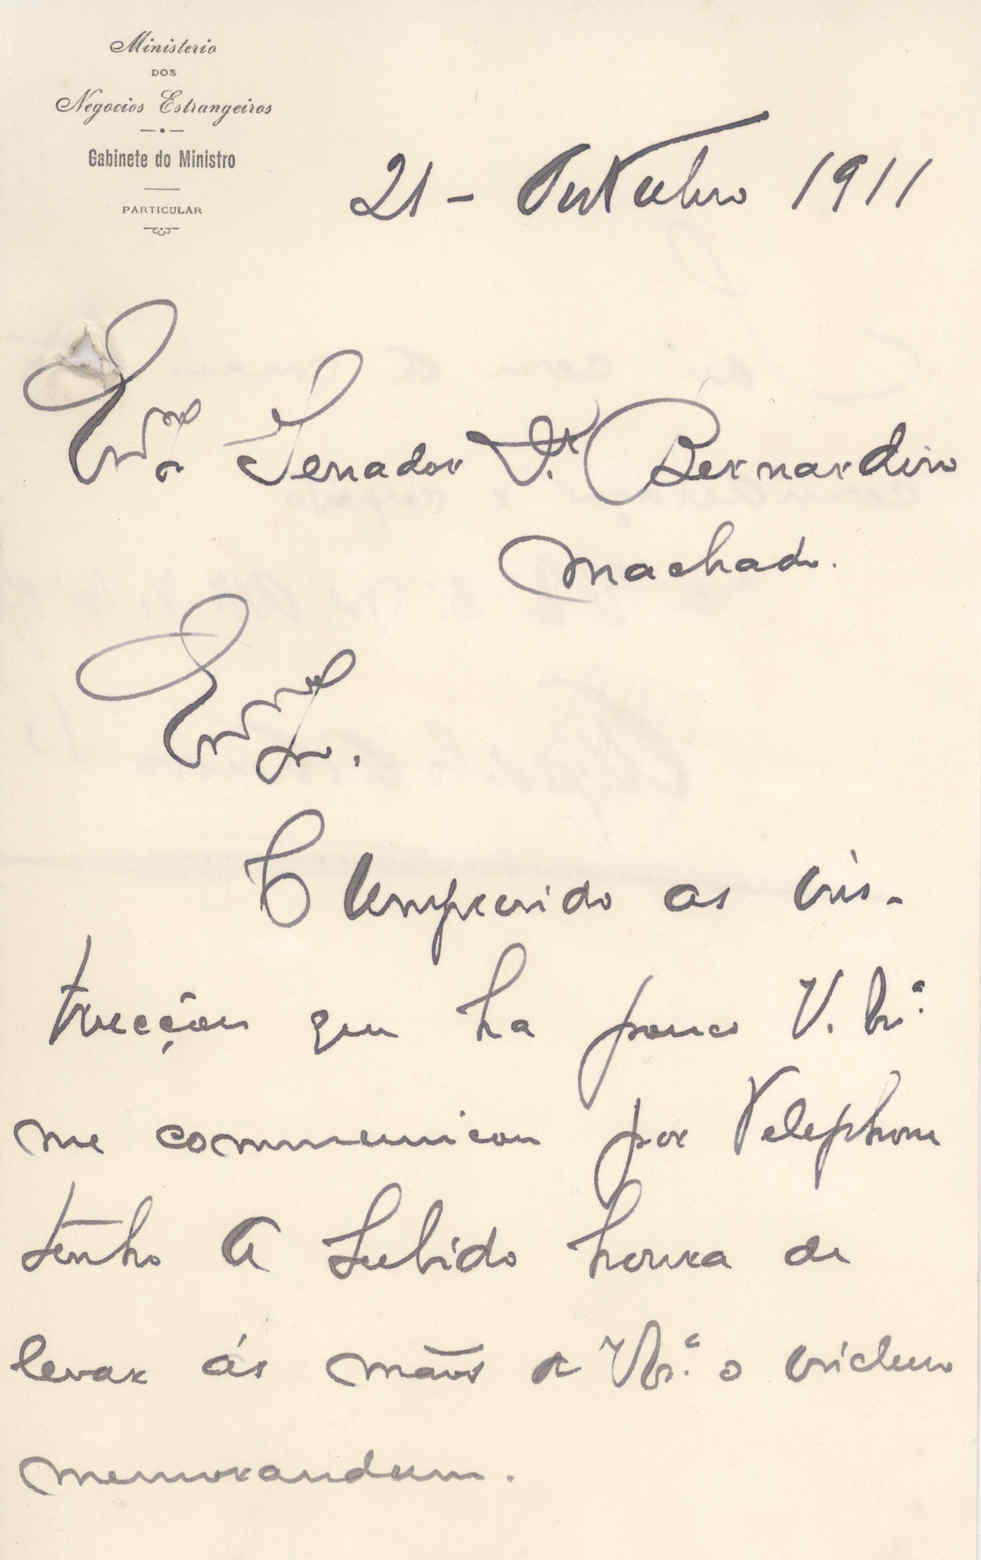 Ministerio
DOS
Negocios Estrangeiros
Gabinete do Ministro
PARTICULAR
21 - Outubro 1911
Exmo Sr. Senador Dr. Bernardino
Machado.
Exmo Sr.
Cumprindo as ins-
trucções que ha pouco V. Exª
me communicou por telephone
tenho a subida honra de
levar ás mãos de V. Exª o incluso
memorandum.